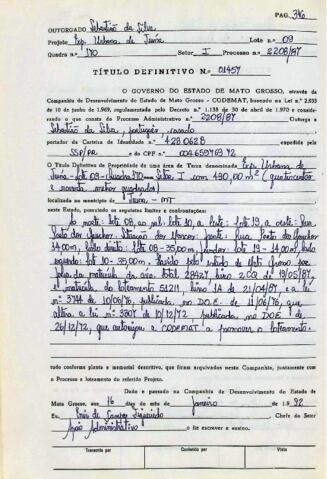 PAG. 346
OUTORGADO Sebastião da Silva
Projeto Exp. Urbana de Juína Lote n.o 09
Quadra n.o 170 Setor I Processo n.o 2208/87
TÍTULO DEFINITIVO N.o 01457
O GOVERNO DO ESTADO DE MATO GROSSO, através da
Companhia de Desenvolvimento do Estado de Mato Grosso - CODEMAT, baseado na Lei n.o 2.933
de 10 de junho de 1969, regulamentada pelo Decreto n.o 1.138 de 30 de abril de 1970 e considerando
o que consta do Processo Administrativo n.o 2208/87 Outorga a
Sebastião da Silva, casado
portador da Carteira de Identidade n.o 428.062 expedida pela
SSP/PR e do CPF n.o
O Título Definitivo de Propriedade de uma área de Terra denominada Exp. Urbana de
Juína - Lote 09 - Quadra 170 - Setor I, com 490,00 m² (quatrocentos
e noventa metros quadrados)
localizada no município de Juína - MT
neste Estado, possuindo os seguintes limites e confrontações:
ao norte: lote 08, ao sul: lote 10, a leste: lote 19, a oeste: Rua
14,00m, lado direito: lote 08 - 35,00m, fundos lote 19 - 14,00m, lado
esquerdo: lote 10 - 35,00m.
matrícula 28427 livro 2CQ de 19/05/87,
e matrícula do loteamento 51211 livro 1A de 21/04/87 e a lei
n.o 3744 de 10/06/76, publicada no D.O.E. de 11/06/76, que
altera a lei n.o 3307 de 10/12/72, publicada no D.O.E. de
26/12/72, que autorizou a CODEMAT a promover o loteamento.
tudo conforme planta e memorial descritivo, que foram arquivados nesta Companhia, juntamente com
o Processo e loteamento do referido Projeto.
Dado e passado na Companhia de Desenvolvimento do Estado de
Mato Grosso, aos 16 dias do mês de Janeiro de 1.992
Eu, Inês de Campos Chefe do Setor
Apoio Administrativo o fiz escrever e assino.
Transcrito por Conferido por Visto